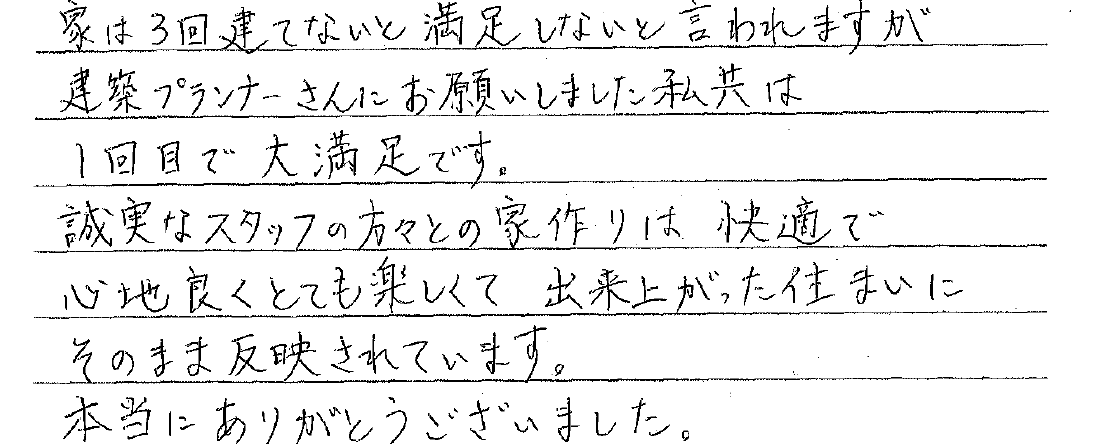 家は3回建てないと満足しないと言われますが
建築プランナーさんにお願いしました私共は
1回目で大満足です。
誠実なスタッフの方々との家作りは快適で
心地良くとても楽しくて出来上がった住まいに
そのまま反映されています。
本当にありがとうございました。